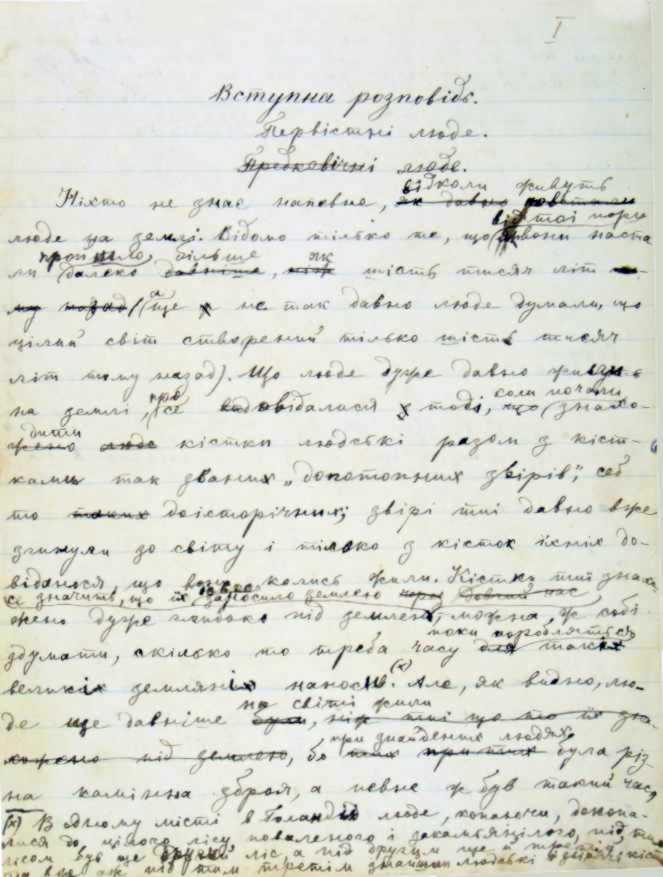 I
Вступна розповідь.
Первістні люде.
Предковічні люде.
Ніхто не знає напевне, відколи живуть
люде на землі. Відомо тілько те, що від тої пори
прошло більше як
ли далеко давніше, ніж шість тисяч літ
му назад (а ще не так давно люде думали, що
цілий світ створений тілько шість тисяч
літ тому назад). Що люде дуже давно живуть
на землі, про се довідалися тоді, коли почали знахо-
дити кістки людські разом з кіст-
ками так званих „допотопних звірів", себ
то доісторічних; звірі тиі давно вже
згинули зо світу і тілько з кісток їхніх до-
відалися, що вони колись жили. Кістки тиі знахо-
се значить, що їх заносило землею
жено дуже глибоко під землею, можна ж собі
здумати, скілько то треба часу поки поробляться
великі земляні наноси. (х) Але, як видно, лю-
де ще давніше на світі жили
при знайдених людях
хожено під землею, бо була різ
на камінна зброя, а певне ж був такий час,
(х) В одному місті в Голандії люде, копаючи, докопа-
лися до цілого лісу поваленого і закамьянілого, під тим
лісом був ще другий ліс, а під другим ще й третій
аж під тим третім знайшли людські і звірячі кіст